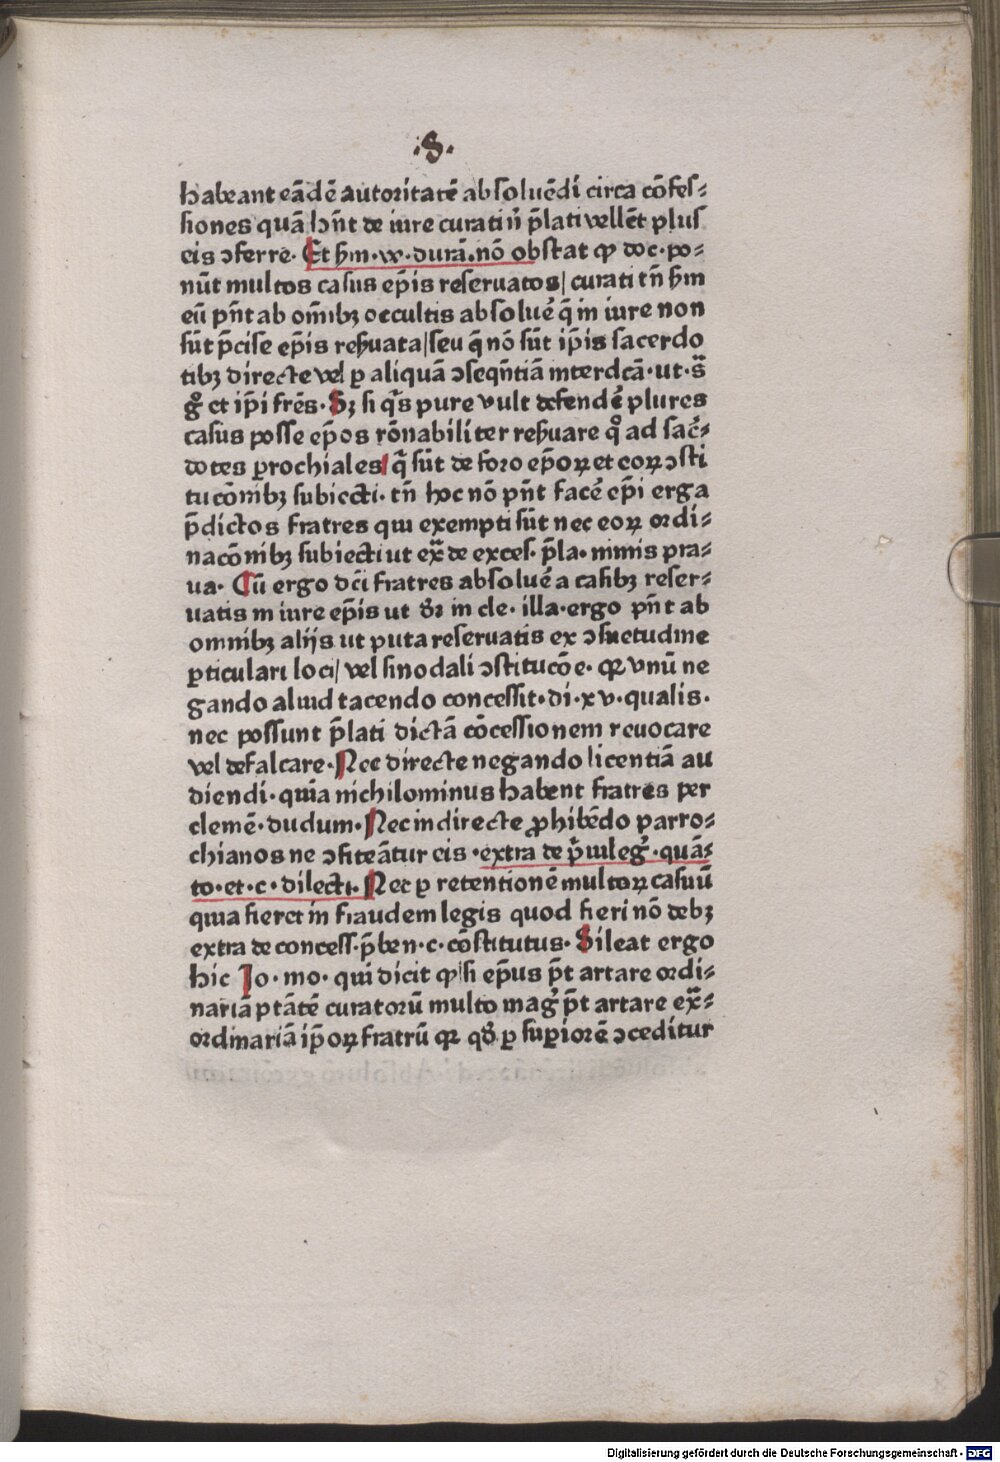 .8.
habeant eādē autoritatē absoluēdi circa cōfes⸗
siones quā hn̄t de iure curati n̄ p̄lati vellēt plus
eis ɔferre. Et ẜm.w.durā.nō obstat ꝙ doc. po⸗
nūt multos casus ep̄is reseruatos/ curati tn̄ ẜm
eū pn̄t ab om̄ibꝫ occultis absoluē q̄ in iure non
sūt p̄cise ep̄is reẜuata/seu q̄ nō sūt ip̄is sacerdo
tibꝫ directe vel p aliquā ɔseqn̄tiā interdcā.ut.s̄
g̊ et ip̄i frēs. Sꝫ si q̄s pure vult defendē plures
casus posse ep̄os rōnabiliter reẜuare q̊ ad sac̄⸗
dotes ꝑrochiales/ q̄ sūt de foro ep̄oꝝ et eoꝝ ɔsti
tucōnibꝫ subiecti. tn̄ hoc nō pn̄t facē ep̄i erga
p̄dictos fratres qui exempti sūt nec eoꝝ ordi⸗
nacōnibꝫ subiecti ut ex̄ de exces. p̄la. nimis pra⸗
ua. Cū ergo dc̄i fratres absoluē a casibꝫ reser⸗
uatis in iure ep̄is ut dr̄ in cle. illa.ergo pn̄t ab
omnibꝫ alijs ut puta reseruatis ex ɔsuetudine
ꝑticulari loci/ vel sinodali ɔstitucōe. qꝛ vnū ne
gando aliud tacendo concessit.di.xv.qualis.
nec possunt p̄lati dictā cōcessionem reuocare
vel defalcare. Nec directe negando licentiā au
diendi.quia nichilominus habent fratres per
clemē.dudum. Nec indirecte ꝓhibēdo parro⸗
chianos ne ɔfiteātur eis .extra de p̄uileḡ.quā⸗
to.et.c.dilecti. Nec ꝑ retentionē multoꝝ casuū
quia fieret in fraudem legis quod fieri nō debꝫ
extra de concess.p̄ben.c.cōstitutus. Sileat ergo
hic Jo.mo.qui dicit ꝙ si ep̄us p̄t artare ordi⸗
nariā ptātē curatorū multo maḡ p̄t artare ex̄⸗
ordinariā ip̄oꝝ fratrū qꝛ qd̄ ꝑ supiorē ɔceditur
Digitalisierung gefördert durch die Deutsche Forschungsgemeinschaft - DFG